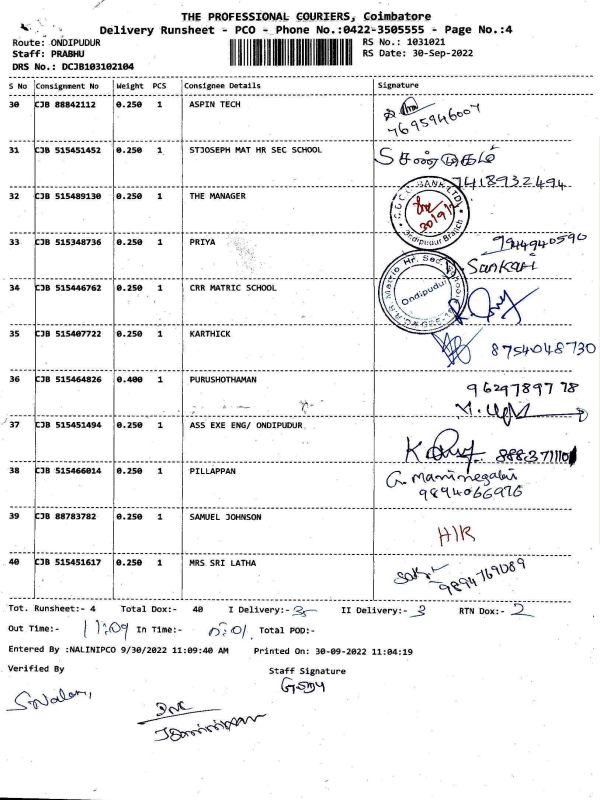 THE PROFESSIONAL COURIERS, Coimbatore
Delivery Runsheet - PCO - Phone No.:0422-3505555 - Page No.:4
Route: ONDIPUDUR RS No.: 1031021
Staff: PRABHU RS Date: 30-Sep-2022
DRS No.: DCJB103102104
S No Consignment No Weight PCS Consignee Details Signature
30 CJB 88842112 0.250 1 ASPIN TECH
7695946007
31 CJB 515451452 0.250 1 STJOSEPH MAT HR SEC SCHOOL S சண்முகம்
7418932494
32 CJB 515489130 0.250 1 THE MANAGER
BANK LTD
30/9/
Ondipudur Branch
33 CJB 515348736 0.250 1 PRIYA 9944940590
Sankari
34 CJB 515446762 0.250 1 CRR MATRIC SCHOOL
Matric Hr. Sec. School
Ondipudur
35 CJB 515407722 0.250 1 KARTHICK 8754048730
36 CJB 515464826 0.400 1 PURUSHOTHAMAN 9629789778
37 CJB 515451494 0.250 1 ASS EXE ENG/ ONDIPUDUR
38 CJB 515466014 0.250 1 PILLAPPAN G. Manimegalai
9894066976
39 CJB 88783782 0.250 1 SAMUEL JOHNSON H/R
40 CJB 515451617 0.250 1 MRS SRI LATHA 9894769089
Tot. Runsheet:- 4 Total Dox:- 40 I Delivery:- 35 II Delivery:- 3 RTN Dox:- 2
Out Time:- 11:09 In Time:- Total POD:-
Entered By :NALINIPCO 9/30/2022 11:09:40 AM Printed On: 30-09-2022 11:04:19
Verified By Staff Signature